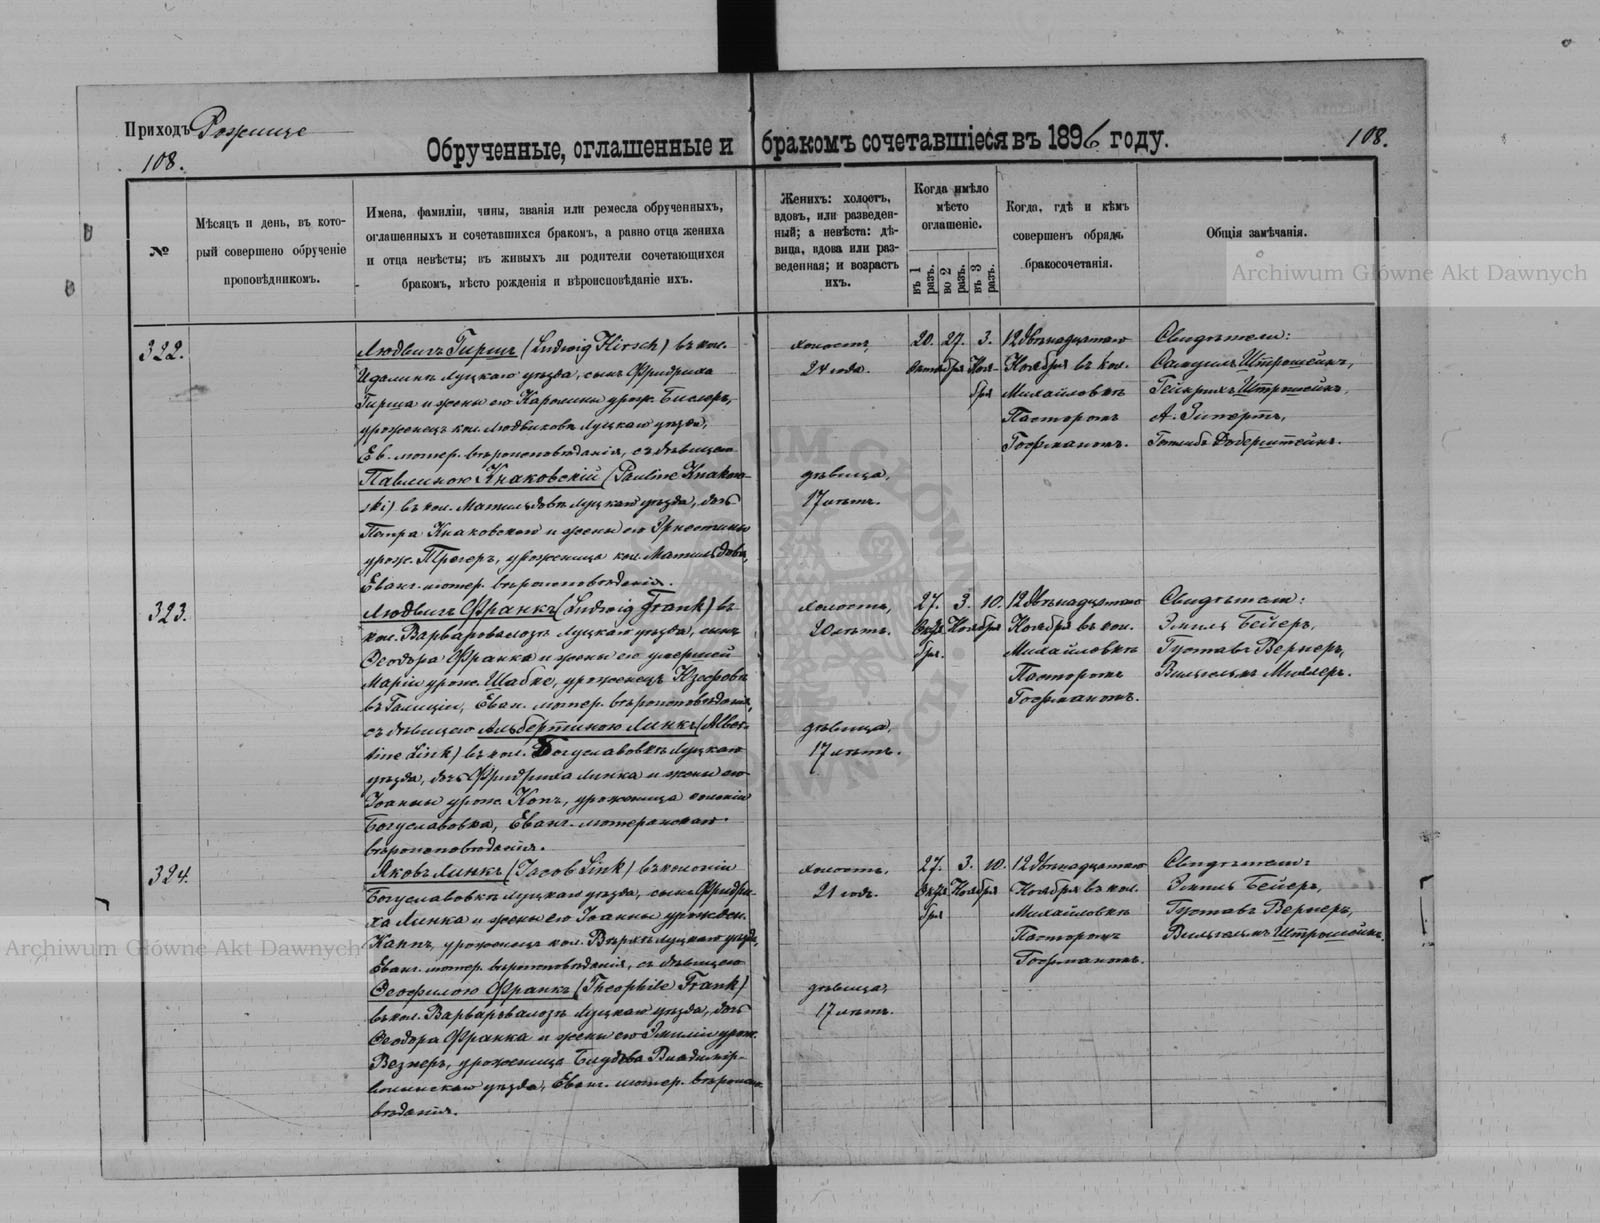 Приходъ Рожище
108.
108.
Обрученные, оглашенные и бракомъ сочетавшіеся въ 1896 году.
№
Мѣсяцъ и день, въ кото-
рый совершено обрученіе
проповѣдникомъ.
Имена, фамиліи, чины, званія или ремесла обрученныхъ,
оглашенныхъ и сочетавшихся бракомъ, а равно отца жениха
и отца невѣсты; въ живыхъ ли родители сочетающихся
бракомъ, мѣсто рожденія и вѣроисповѣданіе ихъ.
Женихъ: холостъ,
вдовъ, или разведен-
ный; а невѣста: дѣ-
вица, вдова или раз-
веденная; и возрастъ
ихъ.
Когда имѣло
мѣсто
оглашеніе.
въ 1 разъ.
во 2 разъ.
въ 3 разъ.
Когда, гдѣ и кѣмъ
совершенъ обрядъ
бракосочетанія.
Общія замѣчанія.
Archiwum Główne Akt Dawnych
322.
Людвигъ Гиршъ (Ludwig Hirsch) въ кол.
Идалинъ Луцкаго уѣзда, сынъ Фридриха
Гирша и жены его Каролины урож. Бислеръ,
уроженецъ кол. Людвиковъ Луцкаго уѣзда,
Ев. лютер. вѣроисповѣданія, съ дѣвицею
Павлиною Кнаковскій (Pauline Knakow-
ski) въ кол. Матильдовъ Луцкаго уѣзда, дочь
Петра Кнаковскаго и жены его Эрнестины
урож. Трегеръ, уроженица кол. Матильдовъ,
Еванг. лютер. вѣроисповѣданія.
холостъ,
24 года.
дѣвица,
17 лѣтъ.
20. 27. 3.
Октября Ноя-
бря
12 двѣнадцатаго
Ноября въ кол.
Михайловкѣ
Пасторомъ
Гофманомъ.
Свидѣтели:
Самуилъ Штрошейнъ,
Гейнрихъ Штрошейнъ,
А. Зипертъ,
Готлибъ Доберштейнъ.
323.
Людвигъ Франкъ (Ludwig Frank) въ
кол. Варваровалозъ Луцкаго уѣзда, сынъ
Ѳеодора Франка и жены его умершей
Маріи урож. Шабке, уроженецъ Юзефовъ
въ Галиціи, Еван. лютер. вѣроисповѣданія,
съ дѣвицею Альбертиною Линкъ (Alber-
tine Link) въ кол. Богуславовкѣ Луцкаго
уѣзда, дочь Фридриха Линка и жены его
Іоанны урож. Копъ, уроженица колоніи
Богуславовка, Еванг. лютеранскаго
вѣроисповѣданія.
холостъ,
20 лѣтъ.
дѣвица,
17 лѣтъ.
27. 3. 10.
Октя- Ноября
бря.
12 двѣнадцатаго
Ноября въ кол.
Михайловкѣ
Пасторомъ
Гофманомъ.
Свидѣтели:
Эмиль Бейеръ,
Густавъ Вернеръ,
Вильгельмъ Миллеръ.
324.
Яковъ Линкъ (Jacob Link) въ колоніи
Богуславовкѣ Луцкаго уѣзда, сынъ Фридри-
ха Линка и жены его Іоанны урожден.
Каппъ, уроженецъ кол. Вѣрхъ Луцкаго уѣзда,
Еванг. лютер. вѣроисповѣданія, съ дѣвицею
Ѳеофилою Франкъ (Theophile Frank)
въ кол. Варваровалозъ Луцкаго уѣзда, дочь
Ѳеодора Франка и жены его Эмиліи урож.
Везнеръ, уроженица Блудова Владимір-
волынскаго уѣзда, Еванг. лютер. вѣроиспо-
вѣданія.
холостъ,
21 годъ.
дѣвица,
17 лѣтъ.
27. 3. 10.
Октя- Ноября
бря
12 двѣнадцатаго
Ноября въ кол.
Михайловкѣ
Пасторомъ
Гофманомъ.
Свидѣтели:
Эмиль Бейеръ,
Густавъ Вернеръ,
Вильгельмъ Штрошейнъ.
Archiwum Główne Akt Dawnych